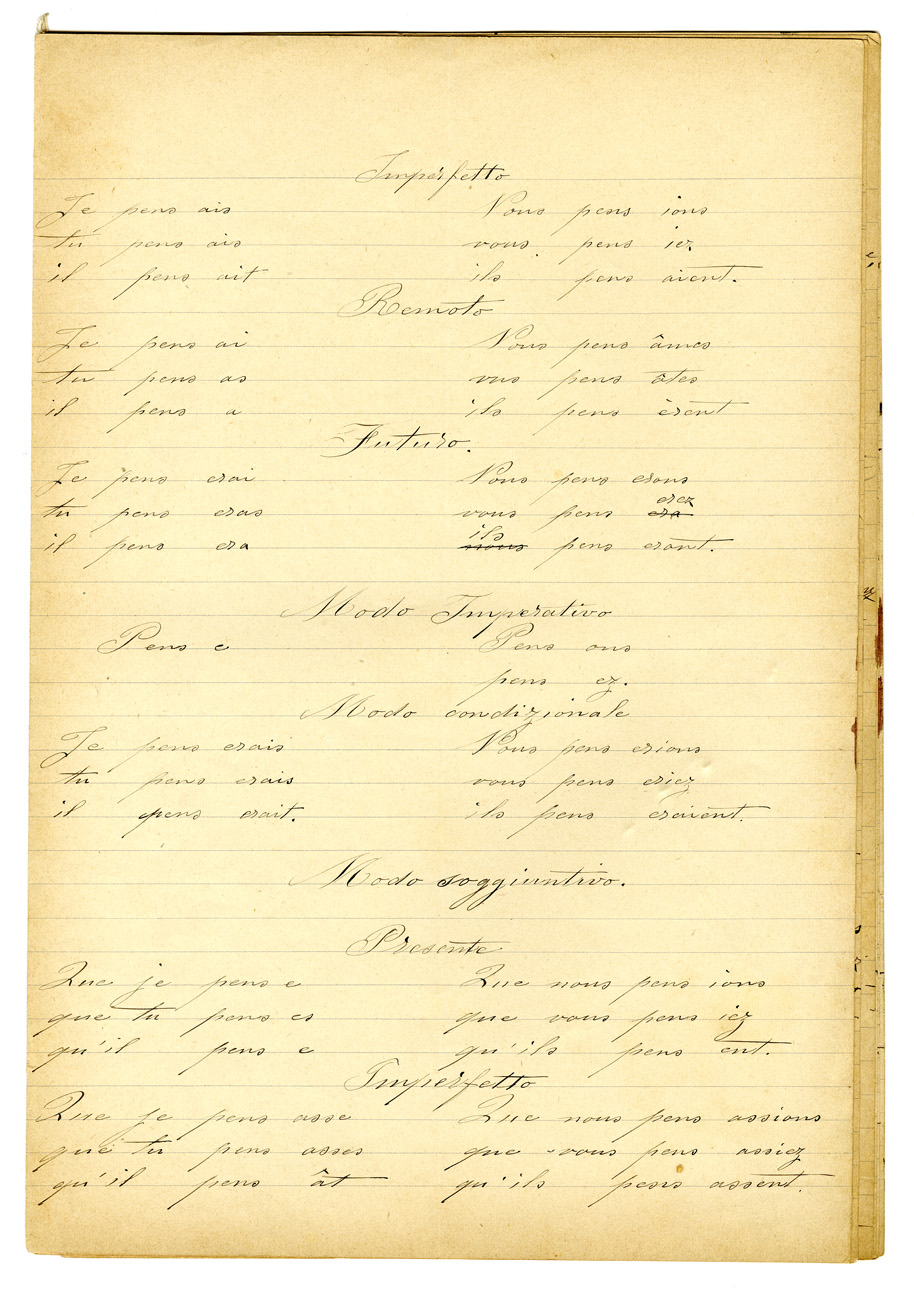 Imperfetto
Je pens ais Nous pens ions
tu pens ais vous pens iez
il pens ait ils pens aient.
Remoto
Je pens ai Nous pens âmes
tu pens as vus pens âtes
il pens a ils pens èrent
Futuro.
Je pens erai Nous pens erons
tu pens eras vous pens era erez
il pens era nous ils pens eront.
Modo Imperativo
Pens e Pens ons
pens ez.
Modo condizionale
Je pens erais Nous pens erions
tu pens erais vous pens eriez
il pens erait. ils pens eraient.
Modo soggiuntivo.
Presente
Que je pens e Que nous pens ions
que tu pens es que vous pens iez
qu'il pens e qu'ils pens ent.
Imperfetto
Que je pens asse Que nous pens assions
que tu pens asses que vous pens assiez
qu'il pens ât qu'ils pens assent.